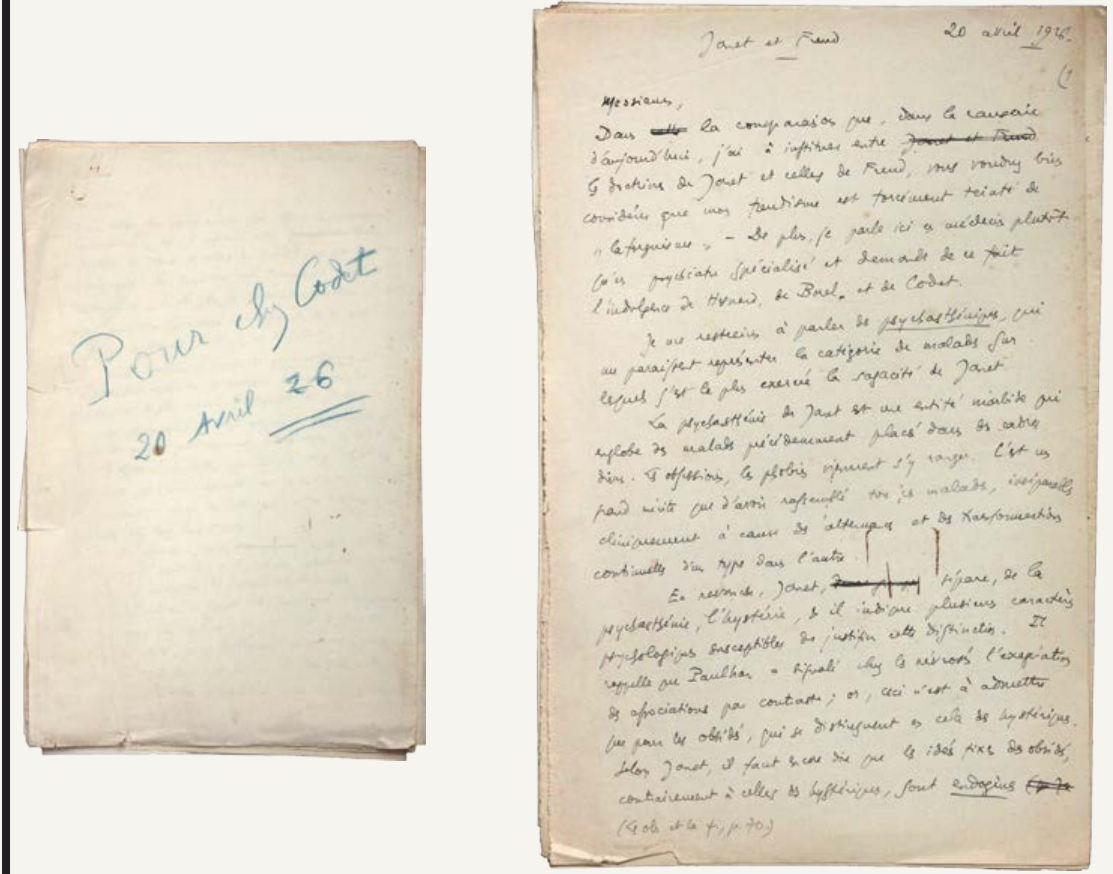 Pour chez Codet
20 Avril 26
Janet et Freud
20 avril 1926.
(1
Messieurs,
Dans la comparaison que, dans la causerie
d'aujourd'hui, j'ai à instituer entre Janet et Freud
les doctrines de Janet et celles de Freud, vous voudrez bien
considérer que mon freudisme est forcément teinté de
"laforguisme" – De plus, je parle ici en médecin plutôt
qu'en psychiatre spécialisé et demande de ce fait
l'indulgence de Hesnard, de Borel, et de Codet.
Je me restreins à parler des psychasthéniques, qui
me paraissent représenter la catégorie de malades sur
lesquels s'est le plus exercée la sagacité de Janet.
La psychasthénie de Janet est une entité morbide qui
englobe des malades précédemment placés dans des cadres
divers. Les obsessions, les phobies viennent s'y ranger. C'est un
grand mérite que d'avoir rassemblé tous ces malades, inséparables
cliniquement à cause des alternances et des transformations
continuelles d'un type dans l'autre.
En revanche, Janet, sépare, de la
psychasthénie, l'hystérie, & il indique plusieurs caractères
psychologiques susceptibles de justifier cette distinction. Il
rappelle que Paulhan a signalé chez les névrosés l'exagération
des associations par contraste; or, ceci n'est à admettre
que pour les obsédés, qui se distinguent en cela des hystériques.
Selon Janet, il faut encore dire que les idées fixes des obsédés,
contrairement à celles des hystériques, sont endogènes
(Les obs et la ψ, p. 70.)